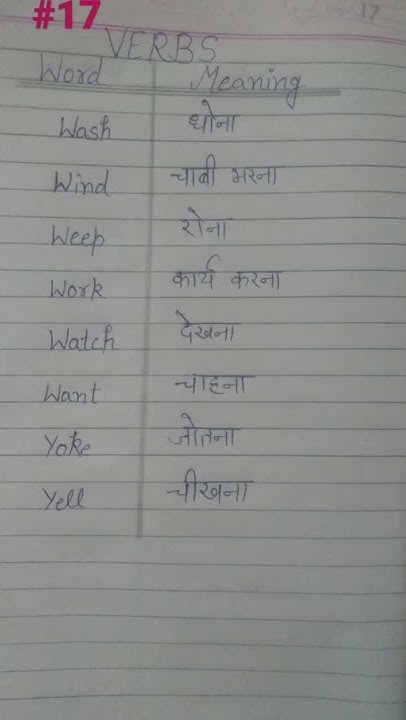 #17
17
VERBS
Word Meaning
Wash धोना
Wind चाबी भरना
Weep रोना
Work कार्य करना
Watch देखना
Want चाहना
Yoke जोतना
Yell चीखना